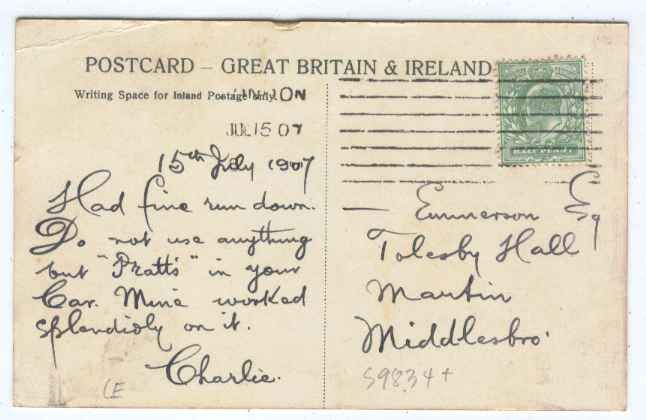 POSTCARD – GREAT BRITAIN & IRELAND
Writing Space for Inland Postage only.
JUL 15 07
15th July 1907
Had fine run down.
Do not use anything
but "Pratts" in your
Car. Mine worked
splendidly on it.
Charlie.
— Emmerson Esq
Tolesby Hall
Martin
Middlesbro'
S9834+
(E